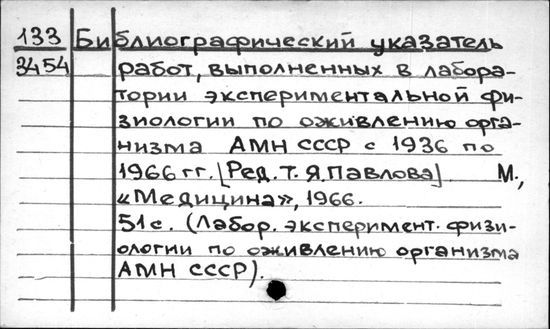 133 Библиографический указатель
3454 работ, выполненных в лабора-
тории экспериментальной фи-
зиологии по оживлению орга-
низма АМН СССР с 1936 по
1966 гг. [Ред. Т. Я. Павлова] М.,
«Медицина», 1966.
51 с. (Лабор. эксперимент. физи-
ологии по оживлению организма
АМН СССР).